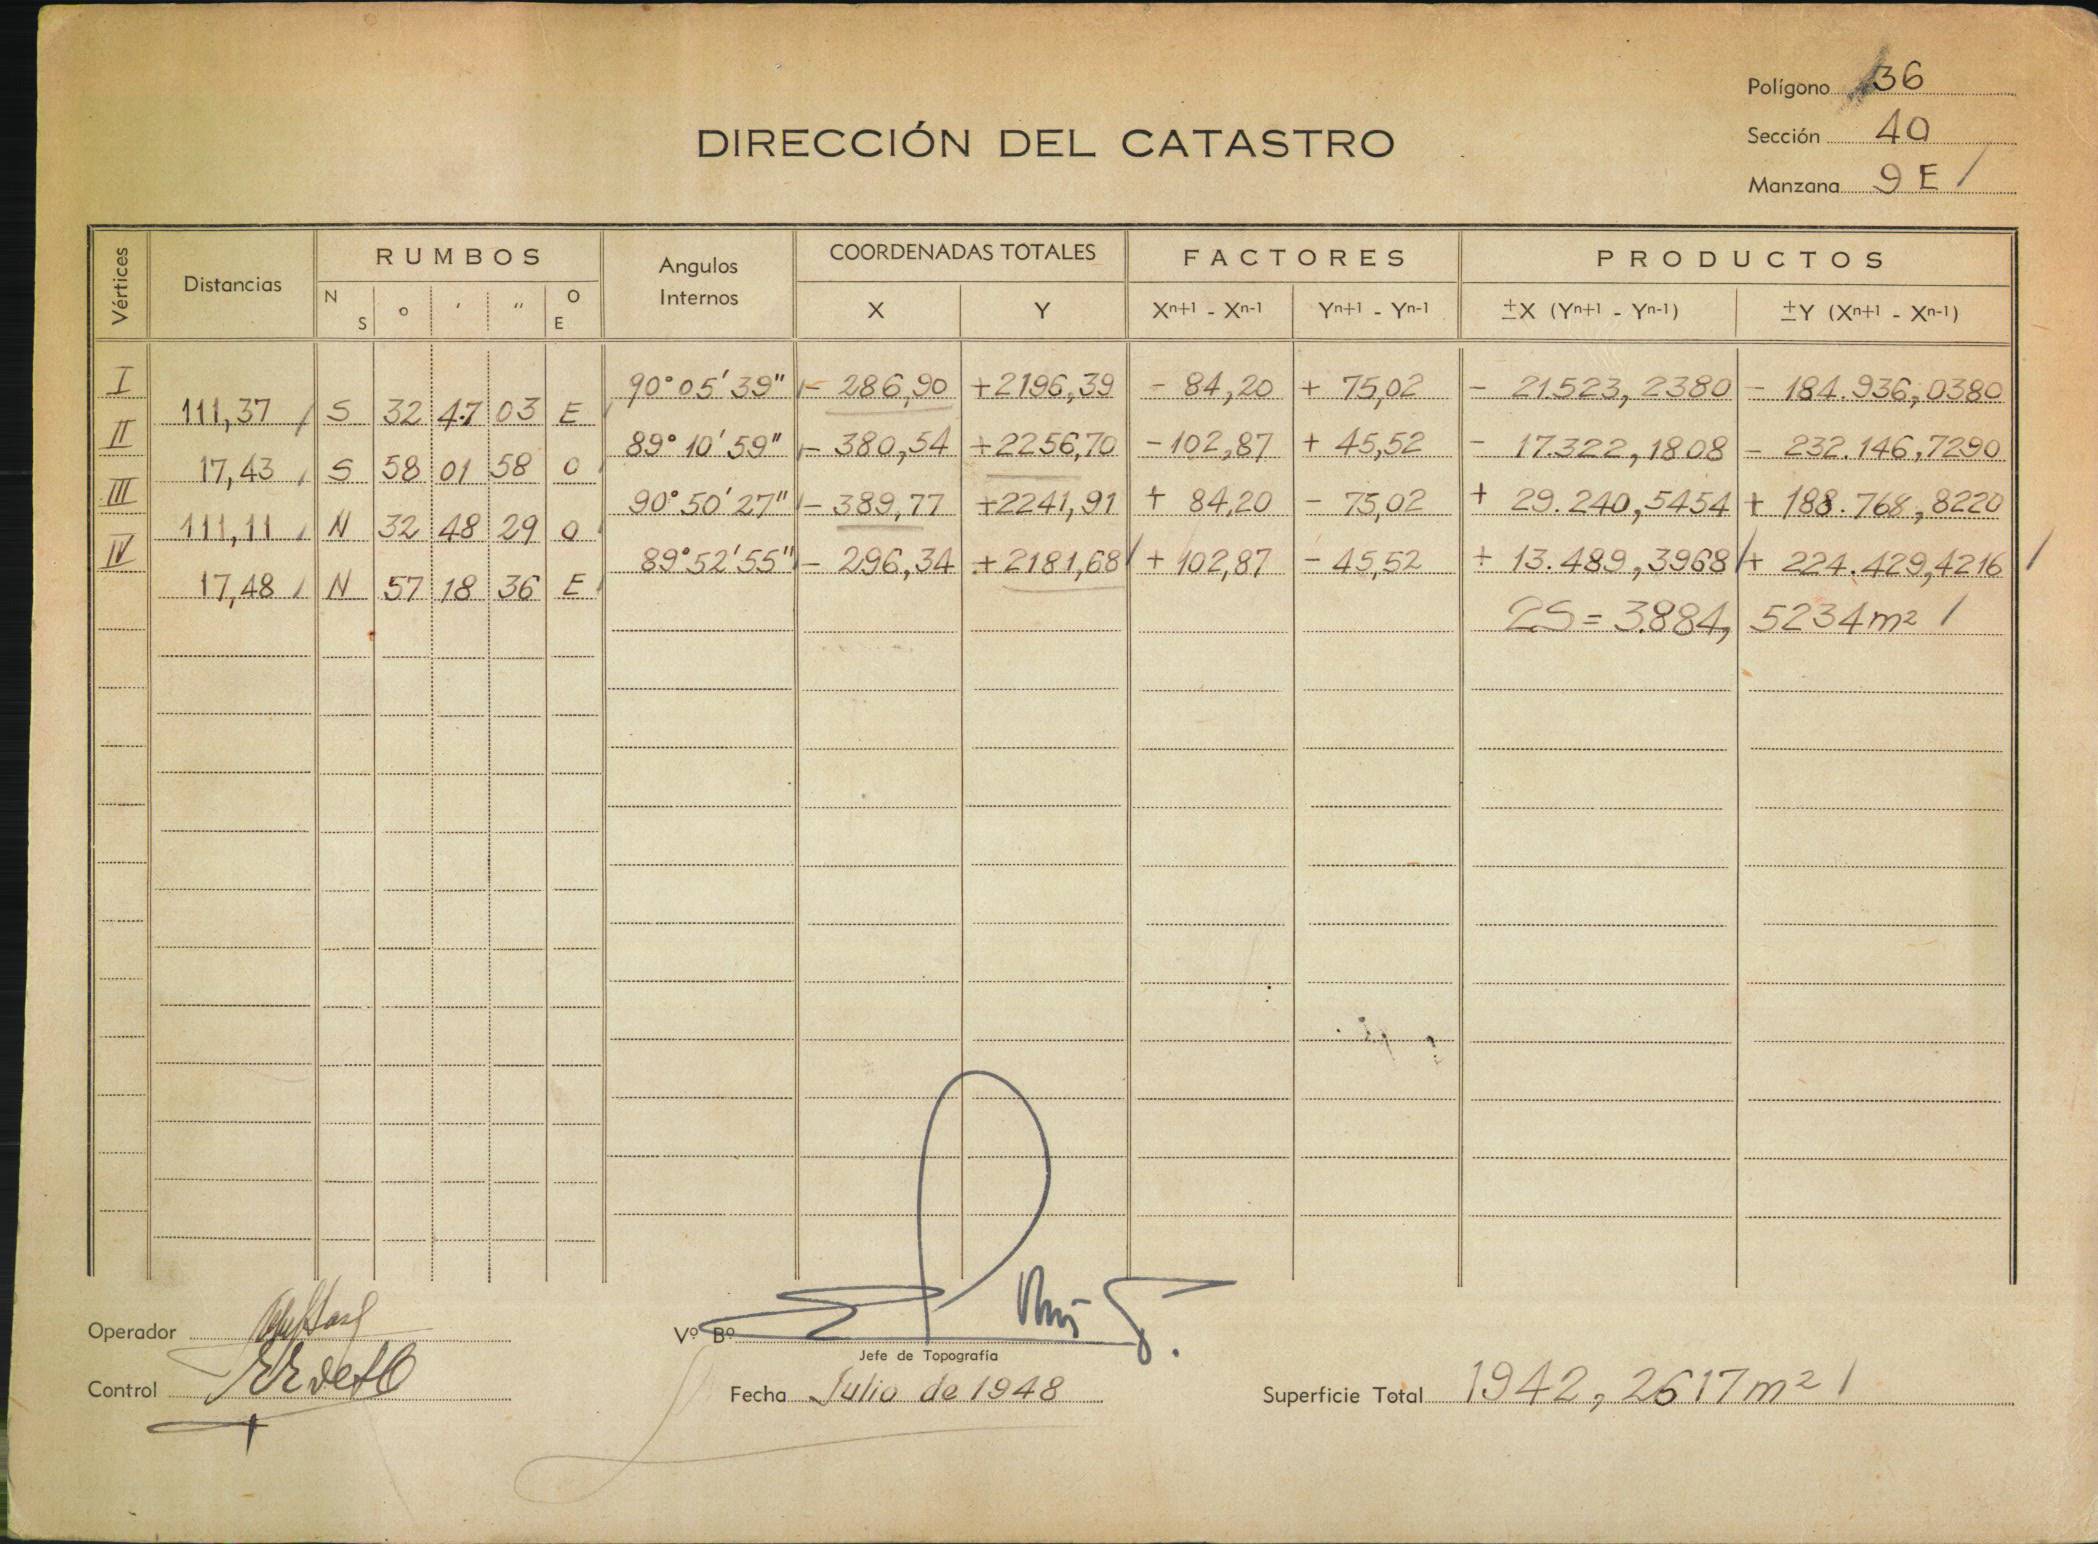 Polígono 36
DIRECCIÓN DEL CATASTRO
Sección 40
Manzana 9 E /
Vértices Distancias RUMBOS Angulos Internos COORDENADAS TOTALES FACTORES PRODUCTOS
N S o ' " O E X Y Xn+1 - Xn-1 Yn+1 - Yn-1 ±X (Yn+1 - Yn-1) ±Y (Xn+1 - Xn-1)
I 90° 05' 39" - 286,90 +2196,39 - 84,20 + 75,02 - 21.523,2380 - 184.936,0380
111,37 / S 32 47 03 E
II 89° 10' 59" - 380,54 +2256,70 -102,87 + 45,52 - 17.322,1808 - 232.146,7290
17,43 / S 58 01 58 O
III 90° 50' 27" - 389,77 +2241,91 + 84,20 - 75,02 + 29.240,5454 + 188.768,8220
111,11 / N 32 48 29 O
IV 89° 52' 55" - 296,34 +2181,68 / + 102,87 - 45,52 + 13.489,3968 / + 224.429,4216 /
17,48 / N 57 18 36 E
2S = 3.884, 5234 m2 /
Operador
Vº Bº
Jefe de Topografía
Control
Fecha Julio de 1948
Superficie Total 1942, 2617 m2 /